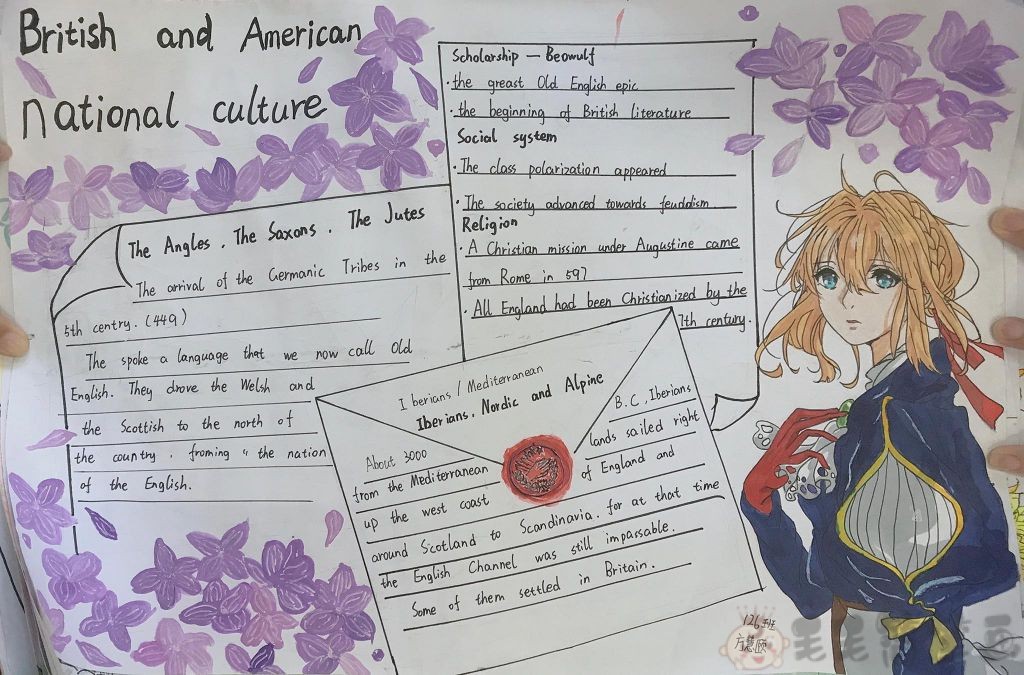 British and American
national culture
Scholarship — Beowulf
· the greast Old English epic
· the beginning of British literature
Social system
· The class polarization appeared
· The society advanced towards feuddism.
Religion
· A Christian mission under Augustine came
from Rome in 597
· All England had been Christianized by the
7th century.
The Angles . The Saxons . The Jutes
The arrival of the Germanic Tribes in the
5th centry. (449)
The spoke a language that we now call Old
English. They drove the Welsh and
the Scottish to the north of
the country , froming " the nation
of the English.
Iberians / Mediterranean
Iberians. Nordic and Alpine
About 3000 B.C., Iberians
from the Mediterranean lands sailed right
up the west coast of England and
around Scotland to Scandinavia. for at that time
the English Channel was still impassable.
Some of them settled in Britain.
126班
方慧颐